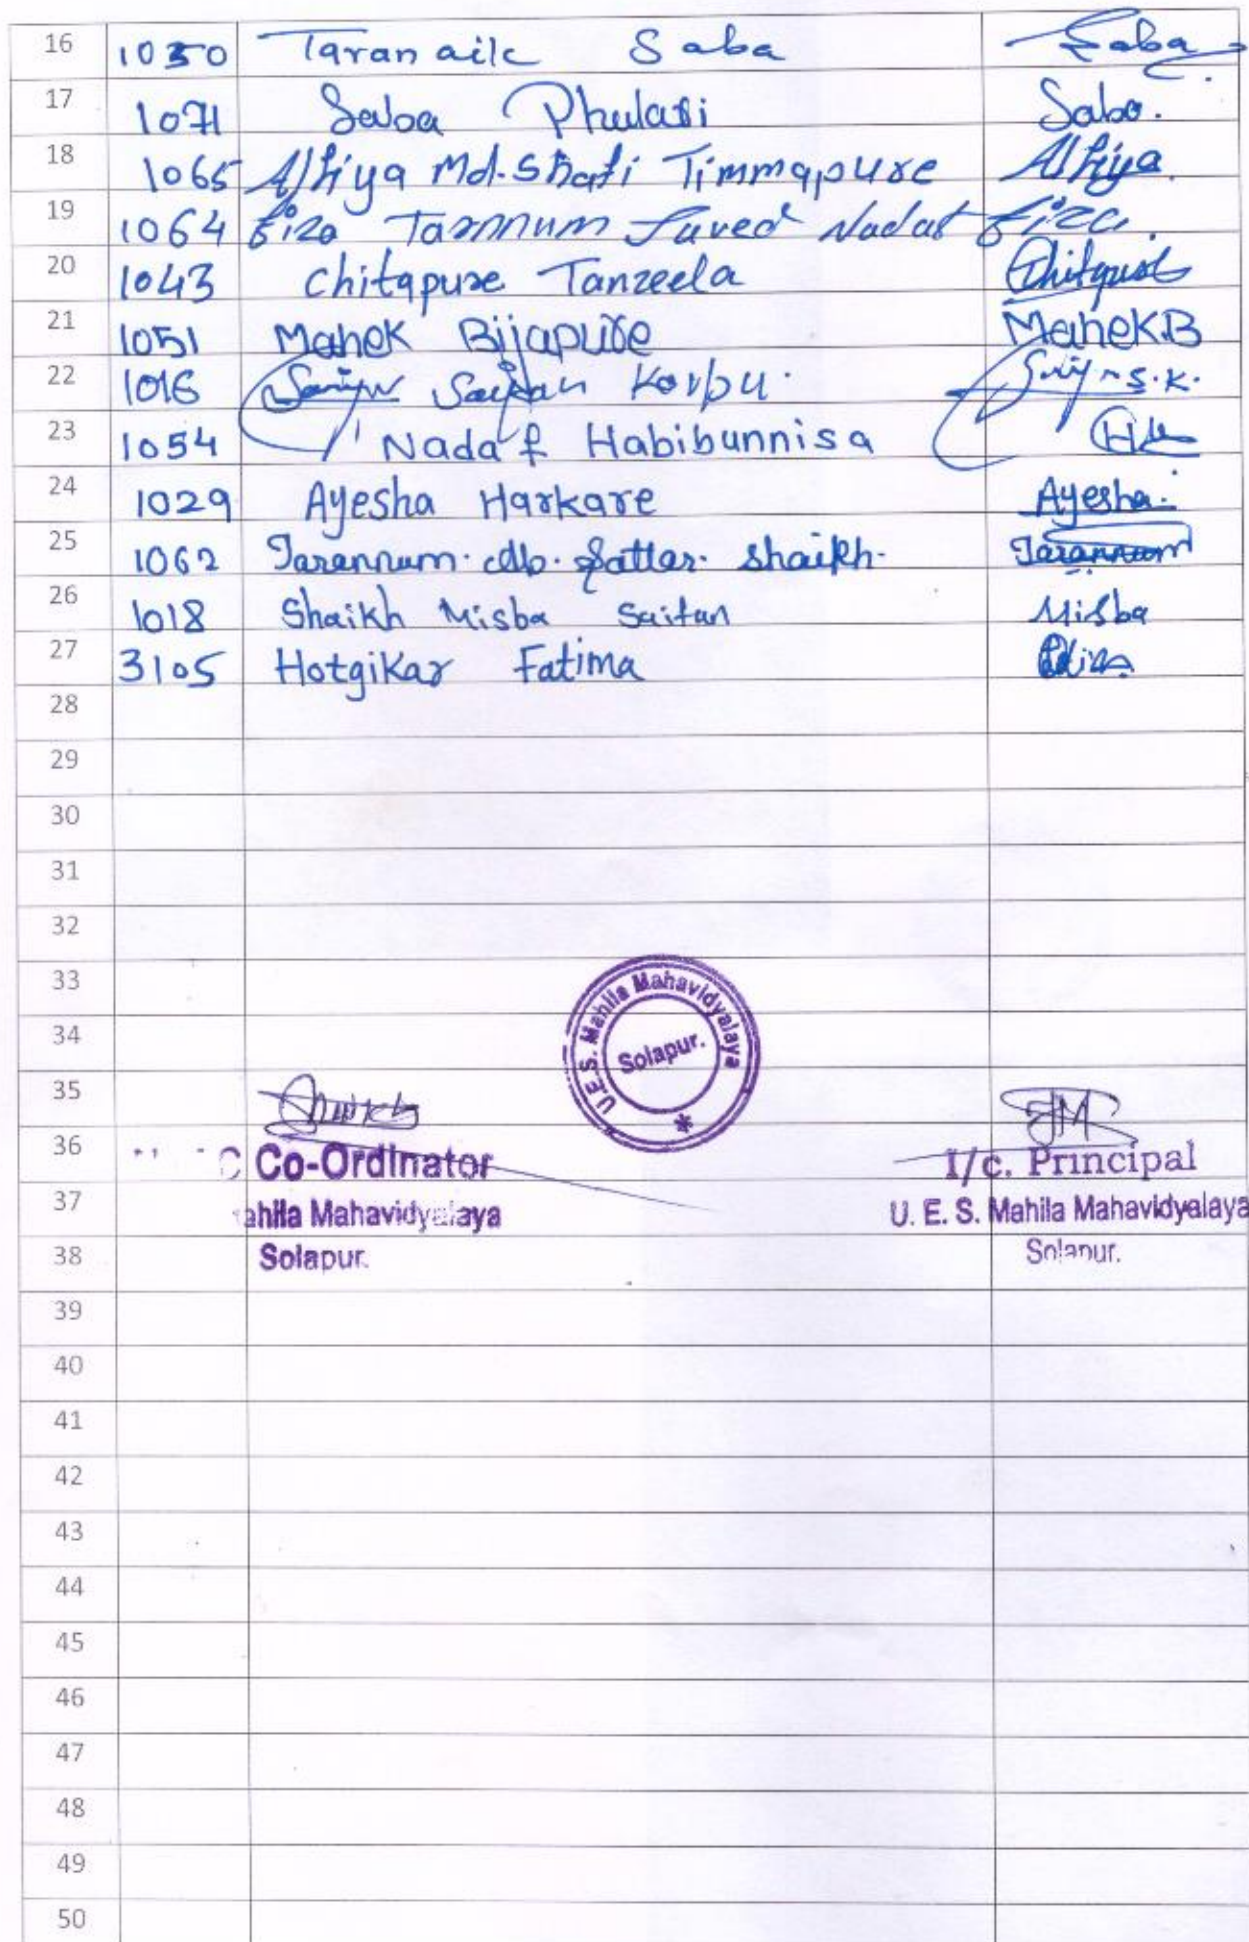 16 1050 Taranaik Saba Saba
17 1071 Saba Phulari Saba.
18 1065 Afiya Md.Shafi Timmapure Afiya
19 1064 fiza Tarannum Javed Nadaf fiza.
20 1043 Chitapure Tanzeela Chitapure
21 1051 Mahek Bijapure Mahek.B
22 1016 Korbu. S.K.
23 1054 Nadaf Habibunnisa
24 1029 Ayesha Harkare Ayesha.
25 1062 Tarannum. Ab. Sattar. Shaikh. Tarannum
26 1018 Shaikh Misba Saifan Misba
27 3105 Hotgikar Fatima
28
29
30
31
32
33
34
35
36
37
38
39
40
41
42
43
44
45
46
47
48
49
50
U.E.S. Mahila Mahavidyalaya
Solapur.
*
C Co-Ordinator
ahila Mahavidyalaya
Solapur.
I/c. Principal
U. E. S. Mahila Mahavidyalaya
Solapur.